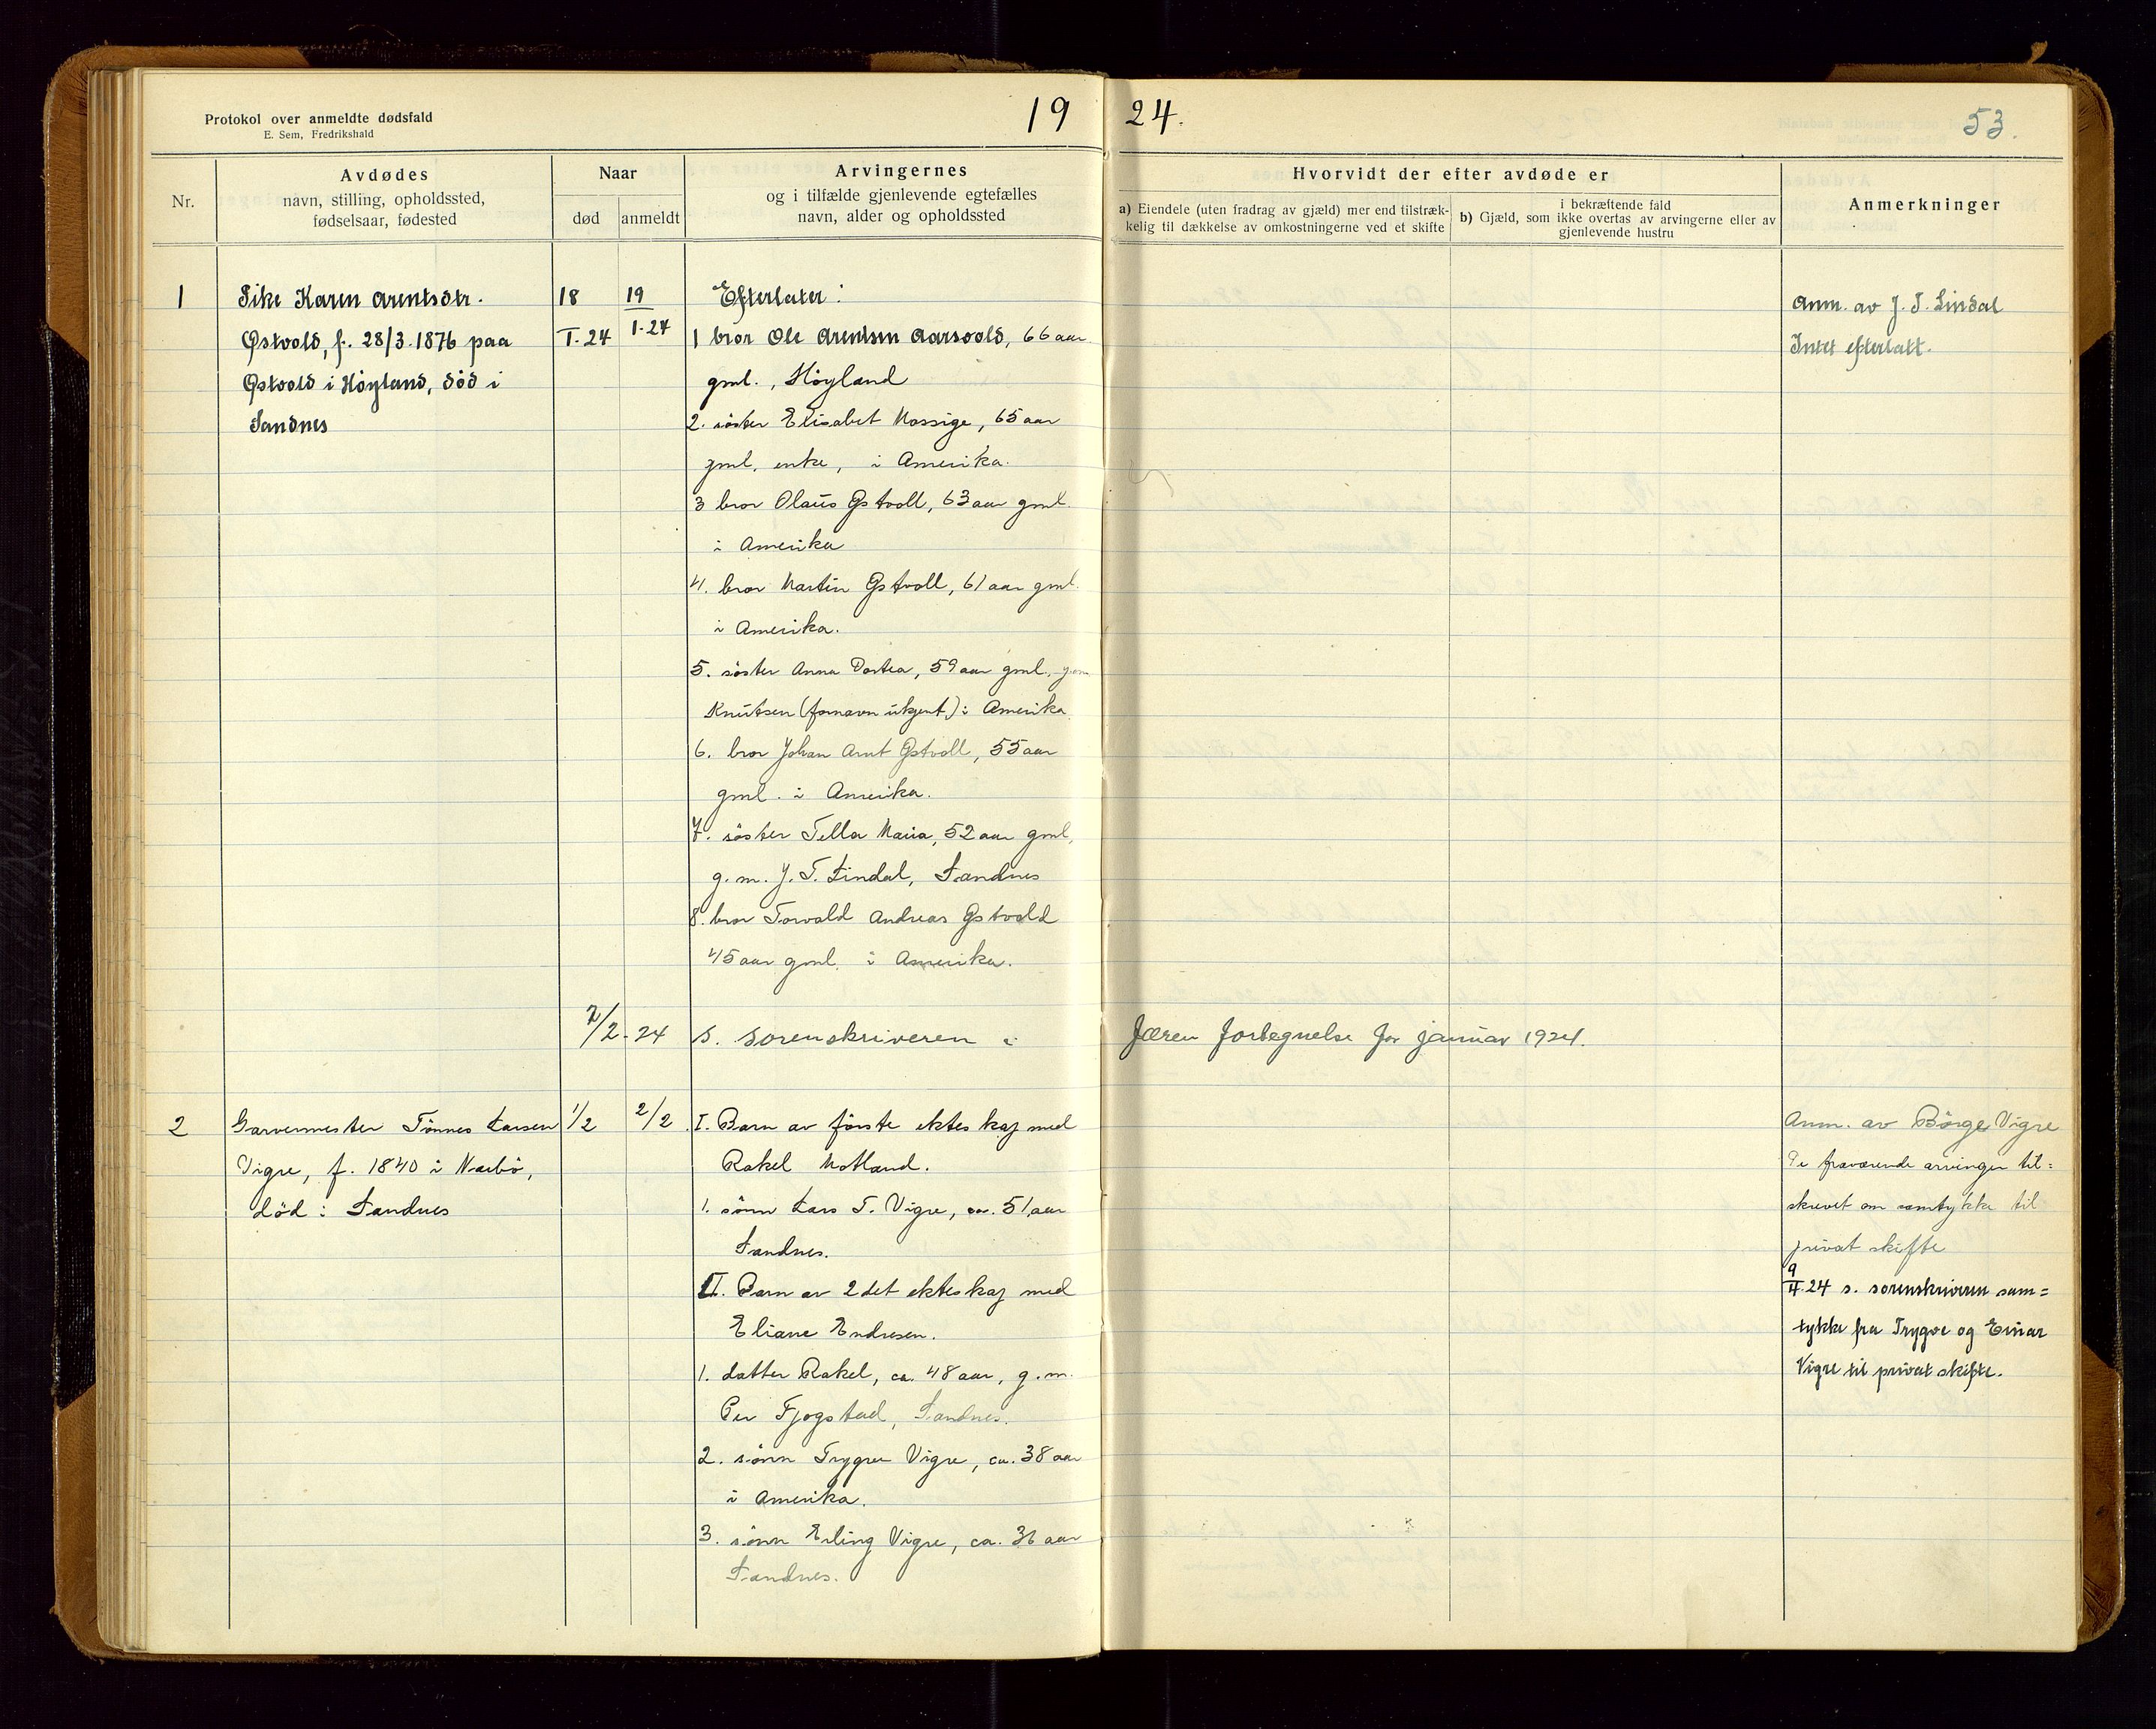 Protokol over anmeldte dødsfald
E. Sem, Fredrikshald
19
24.
53.
Nr.
Avdødes
navn, stilling, opholdssted,
fødselsaar, fødested
Naar
død
anmeldt
Arvingernes
og i tilfælde gjenlevende egtefælles
navn, alder og opholdssted
Hvorvidt der efter avdøde er
a) Eiendele (uten fradrag av gjæld) mer end tilstræk-
kelig til dækkelse av omkostningerne ved et skifte
i bekræftende fald
b) Gjæld, som ikke overtas av arvingerne eller av
gjenlevende hustru
Anmerkninger
1
Pike Karen Arentsdtr.
Østvold, f. 28/3.1876 paa
Østvold i Höyland, död i
Sandnes
18
I.24
19
1-24
Efterlater:
1 bror Ole Arentsen Aarsvold, 66 aar
gml., Höyland
2. söster Elisabet Mossige, 65 aar
gml, enke, i Amerika.
3 bror Olaus Østvoll, 63 aar gml.
i Amerika
4. bror Martin Østvoll, 61 aar gml.
i Amerika.
5. söster Anna Dortea, 59 aar gml., g.m
Knutsen (fornavn ukjent) i Amerika
6. bror Johan Arnt Østvoll, 55 aar
gml. i Amerika.
7. söster Tella Maria, 52 aar gml,
g.m. J. T. Lindal, Sandnes
8. bror Torvald Andreas Østvold
45 aar gml. i Amerika.
Anm. av J. T. Lindal
Intet efterlatt.
2/2-24
s. sorenskriveren i
Jæren fortegnelse for januar 1924.
2
Garvermester Tönnes Larsen
Vigre, f. 1840 i Nærbö,
död i Sandnes
1/2
2/2
I. Barn av förste ekteskap med
Rakel Motland.
1. sönn Lars T. Vigre, ca. 51 aar
Sandnes.
II. Barn av 2det ekteskap med
Eliane Endresen.
1. datter Rakel, ca. 48 aar, g.m.
Per Fjogstad, Sandnes.
2. sönn Trygve Vigre, ca. 38 aar
i Amerika.
3. sönn Erling Vigre, ca. 36 aar
Sandnes.
Anm. av Börge Vigre
De fraværende arvinger til=
skrevet om samtykke til
privat skifte
9/4.24 s. sorenskriveren sam=
tykke fra Trygve og Einar
Vigre til privat skifte.